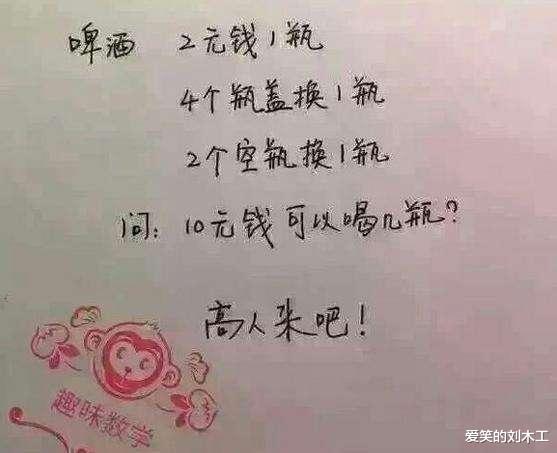 啤酒 2元钱1瓶
4个瓶盖换1瓶
2个空瓶换1瓶
问：10元钱可以喝几瓶？
高人来吧！
趣味数学
爱笑的刘木工